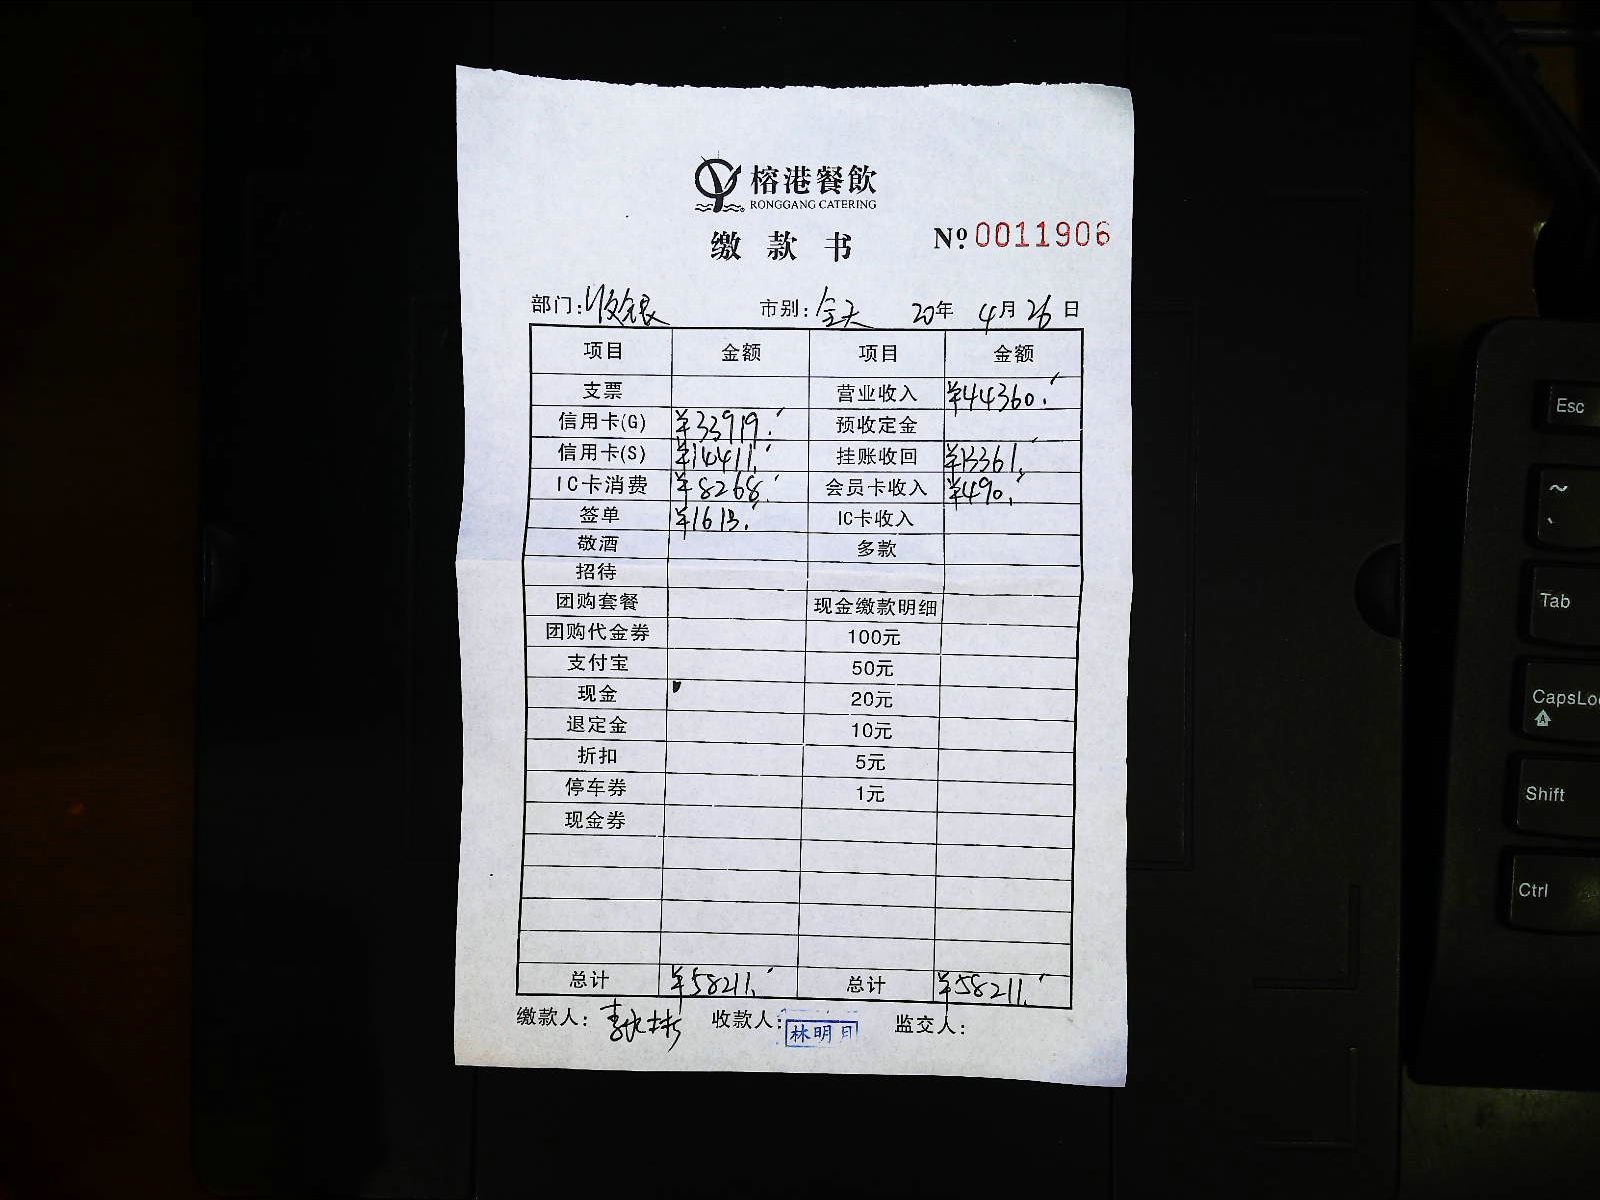 榕港餐飲
RONGGANG CATERING
缴款书 Nº 0011906
部门:收银 市别:全天 20年 4月 26日
项目 金额 项目 金额
支票 营业收入 ¥44360.
信用卡(G) ¥33919. 预收定金
信用卡(S) ¥14411. 挂账收回 ¥13361.
IC卡消费 ¥8268. 会员卡收入 ¥490.
签单 ¥1613. IC卡收入
敬酒 多款
招待
团购套餐 现金缴款明细
团购代金券 100元
支付宝 50元
现金 20元
退定金 10元
折扣 5元
停车券 1元
现金券
总计 ¥58211. 总计 ¥58211.
缴款人: 收款人:林明月 监交人:
Esc
~
`
Tab
CapsLo
Shift
Ctrl